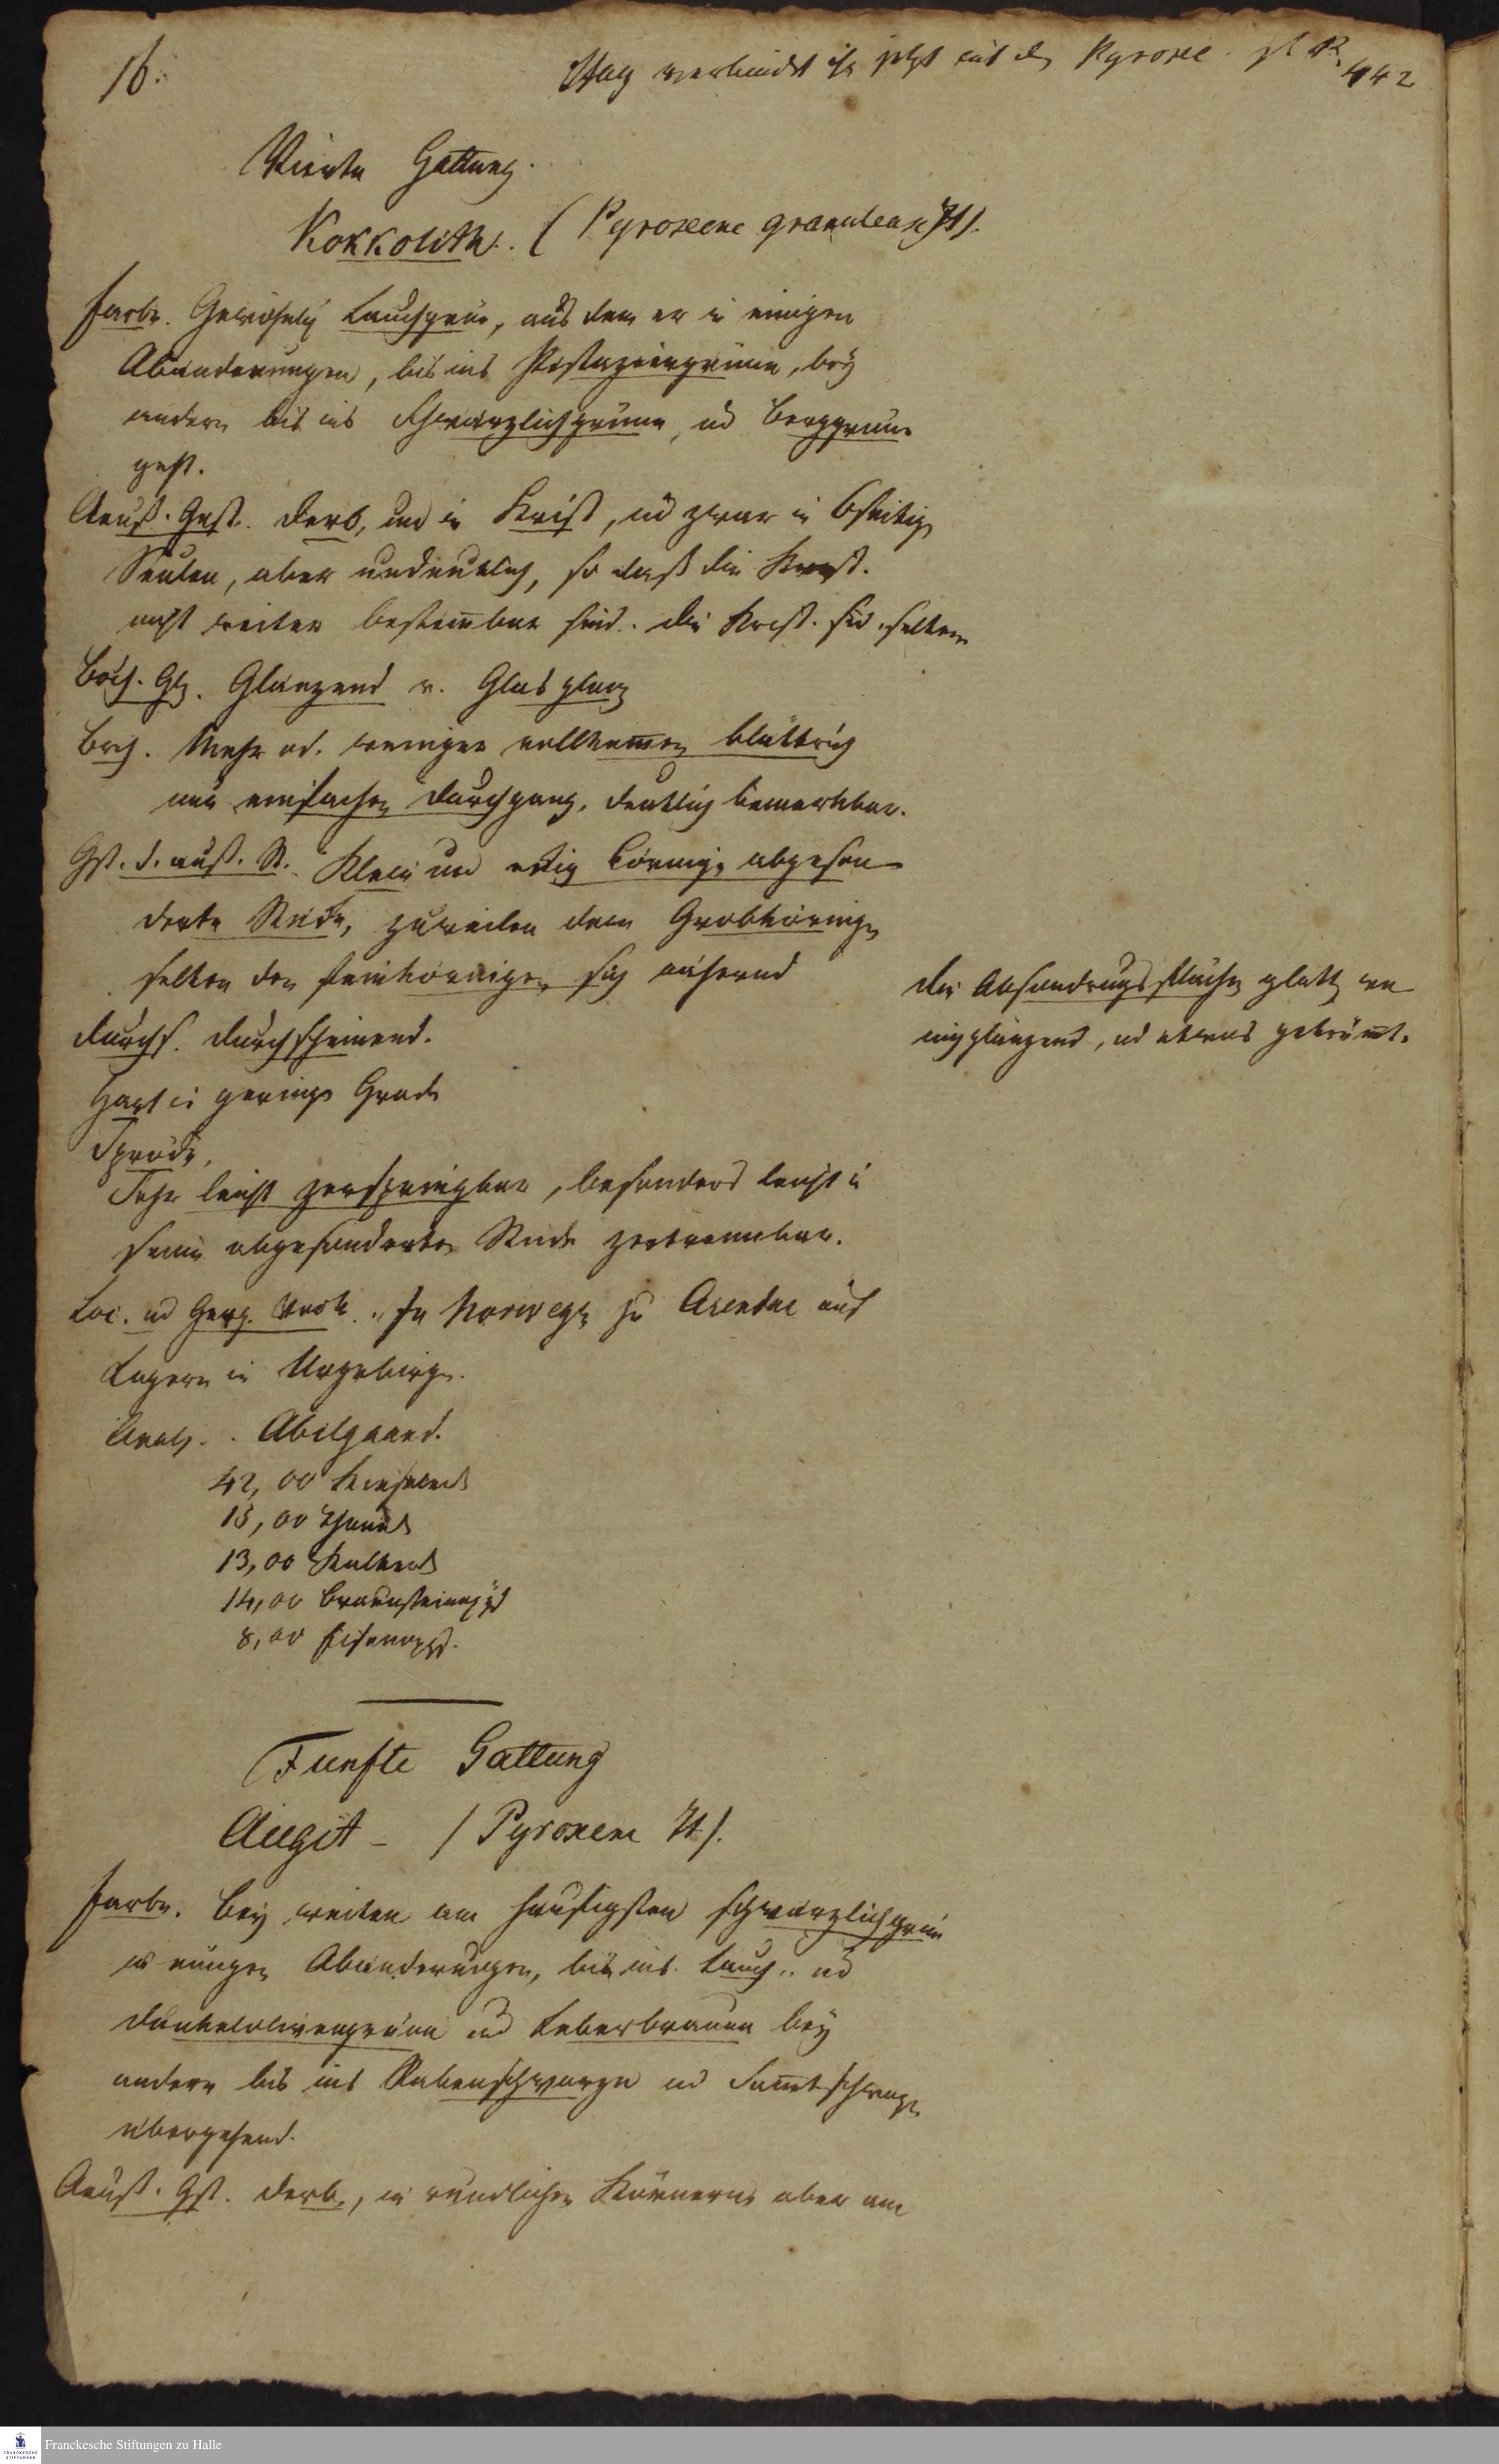 16.
Hauy verbindet ihn jetzt mit dem Pyroxen. pl. R. 442
Vierte Gattung.
Kokkolith. (Pyroxene granulaire H).
Farbe. Gewöhnlich Lauchgrün, aus dem er in einigen
Abänderungen, bis ins Pistaziengrüne, bey
andern bis ins Schwärzlichgrüne, und Berggrüne
geht.
Aeuß. Gest. Derb, und in Krist, und zwar in 6seitige
Seulen, aber undeutlich, so daß die Kryst.
nicht weiter bestim̅bar sind. Die Kryst. sind selten
Bruch. Glz. Glänzend v. Glasglanz
Brch. Mehr od. weniger vollkom̅en blättrich
nur einfacher Durchgang, deutlich bemerkbar.
Gst. d. auß. St. Klein und eckig körnige abgeson-
derte Stücke, zuweilen dem Grobkörnigen
selten den feinkörnigen sich nähernd
Die Absondrungsflächen glatt, we-
nigglänzend, und etwas gekrüm̅t.
Durchs. Durchscheinend.
Hart in geringe Grade
Spröde.
Sehr leicht zerspringbar, besonders leicht in
seine abgesonderten Stücke zertrennbar.
Loc. und Geog. Vork. In Norwegen zu Arendal auf
Lagern in Urgebirge.
Analy. Abilgaard.
42,00 Kieselerde
15,00 Thonerde
13,00 Kalkerde
14,00 Braunsteinoxyd
8,00 Eisenoxyd.
Funfte Gattung
Augit - (Pyroxene H).
Farbe. Bey weiten am häufigsten schwärzlichgrün
in einigen Abänderungen, bis ins Lauch- und
dunkelolivengrüne und Leberbraune bey
andern bis ins Rabenschwarze und Sam̅tschwarze
übergehend.
Aeuß. Gst. Derb, in rundlichen Körnern, aber am
Franckesche Stiftungen zu Halle